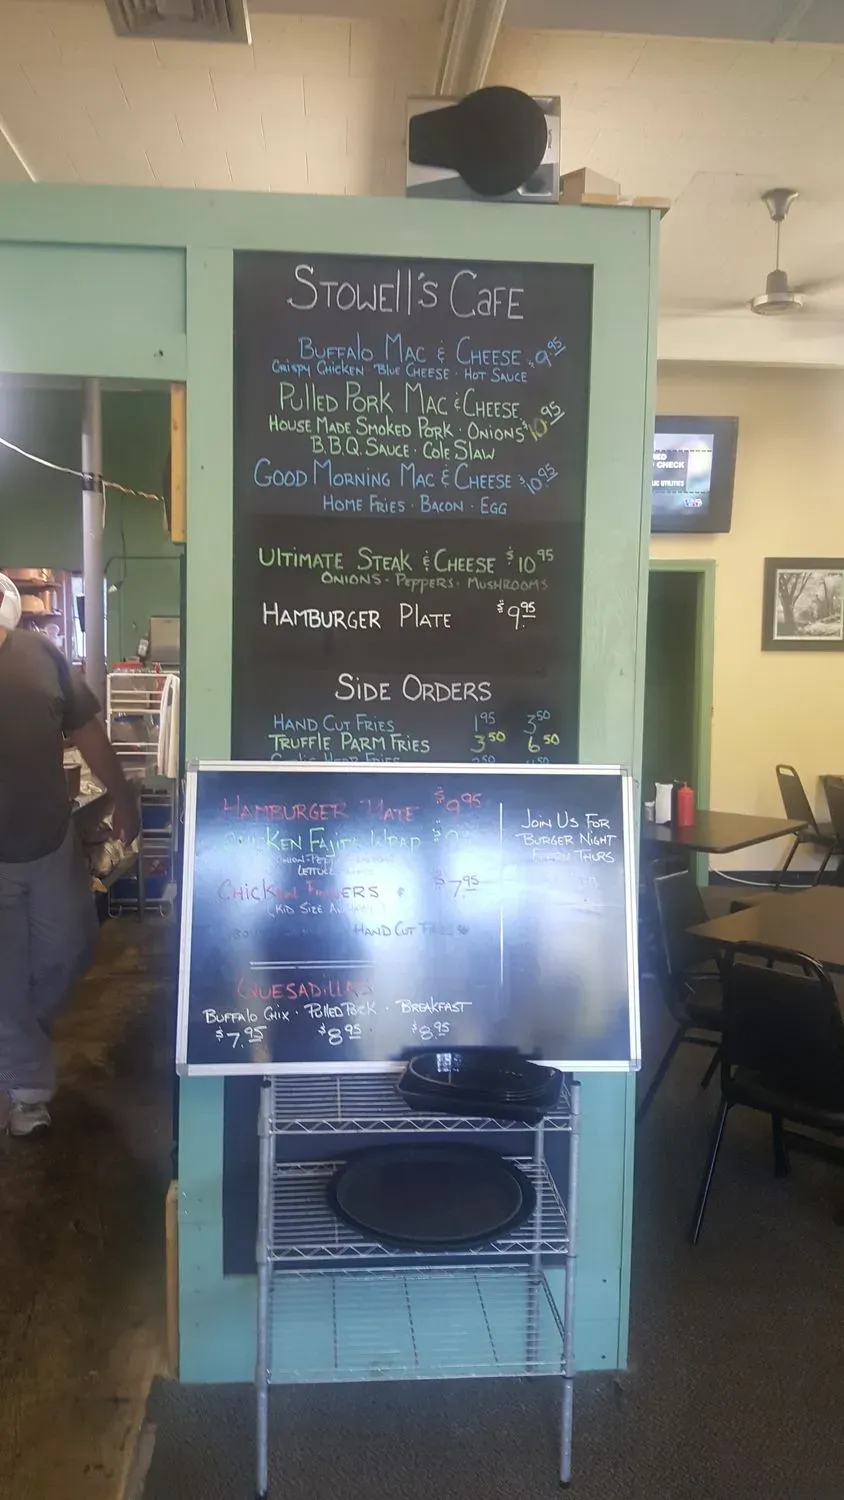 STOWELL'S CAFE
BUFFALO MAC & CHEESE $9.95
CRISPY CHICKEN BLUE CHEESE · HOT SAUCE
PULLED PORK MAC & CHEESE
HOUSE MADE SMOKED PORK · ONIONS $10.95
B.B.Q. SAUCE · COLE SLAW
GOOD MORNING MAC & CHEESE $10.95
HOME FRIES · BACON · EGG
ULTIMATE STEAK & CHEESE $10.95
ONIONS · PEPPERS · MUSHROOMS
HAMBURGER PLATE $9.95
SIDE ORDERS
HAND CUT FRIES 1.95 3.50
TRUFFLE PARM FRIES 3.50 6.50
HAMBURGER PLATE $9.95
CHICKEN FAJITA WRAP
LETTUCE
CHICKEN FINGERS $7.95
(KID SIZE
HAND CUT FRIES
QUESADILLAS
BUFFALO CHIX · PULLED PORK · BREAKFAST
$7.95 $8.95 $8.95
JOIN US FOR
BURGER NIGHT
THURS
CHECK
UTILITIES